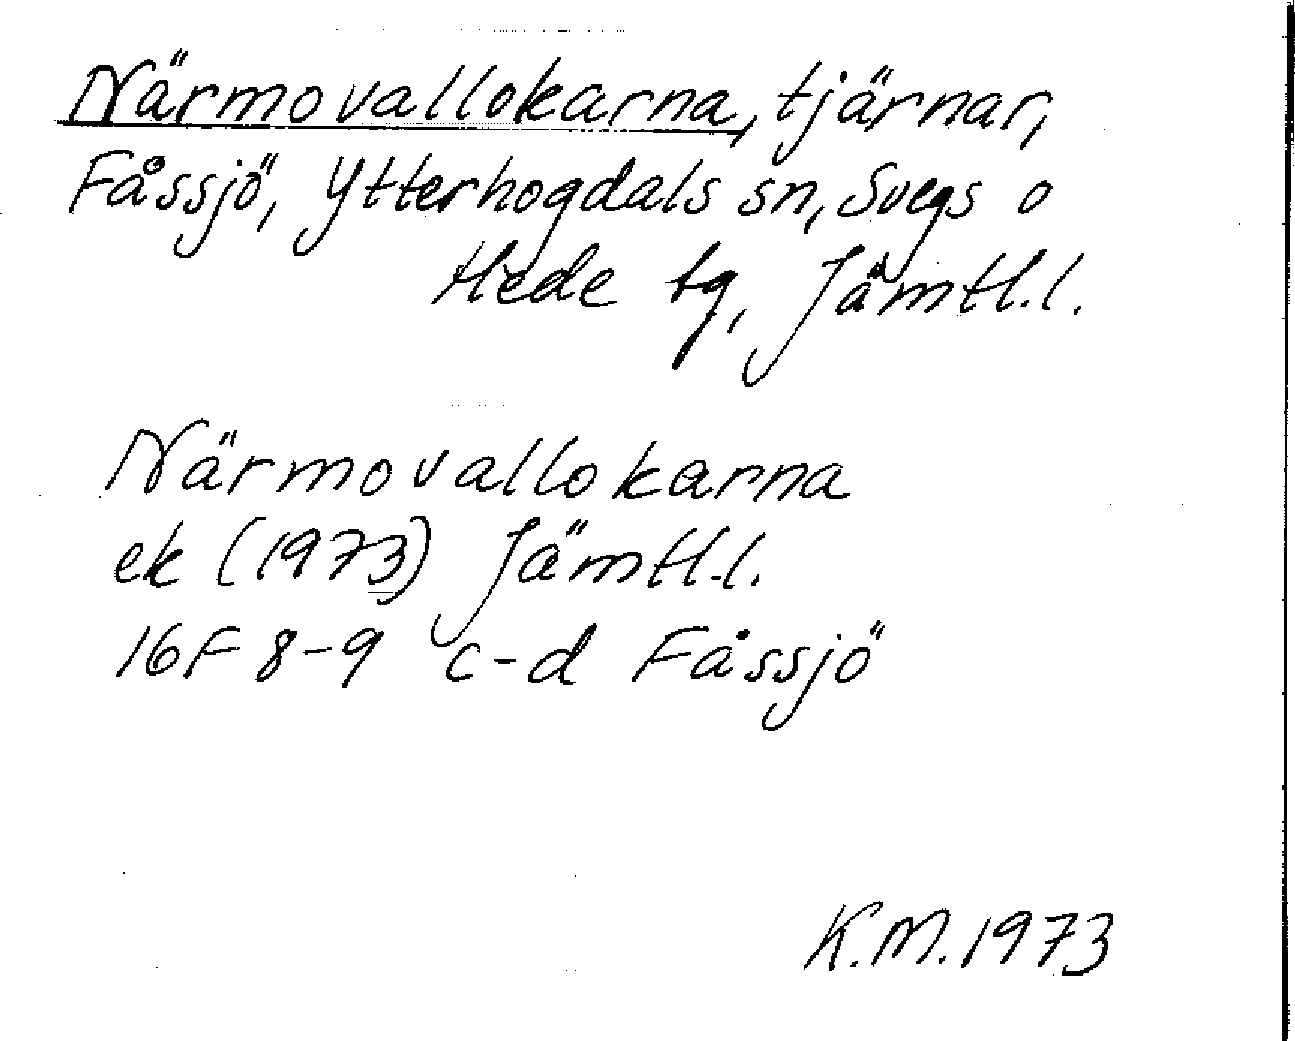 Närmovallokarna, tjärnar,
Fåssjö, Ytterhogdals sn, Svegs o
Hede tg, Jämtl.l.
Närmovallokarna
ek (1973) Jämtl.l.
16F 8-9 c-d Fåssjö
K.M. 1973